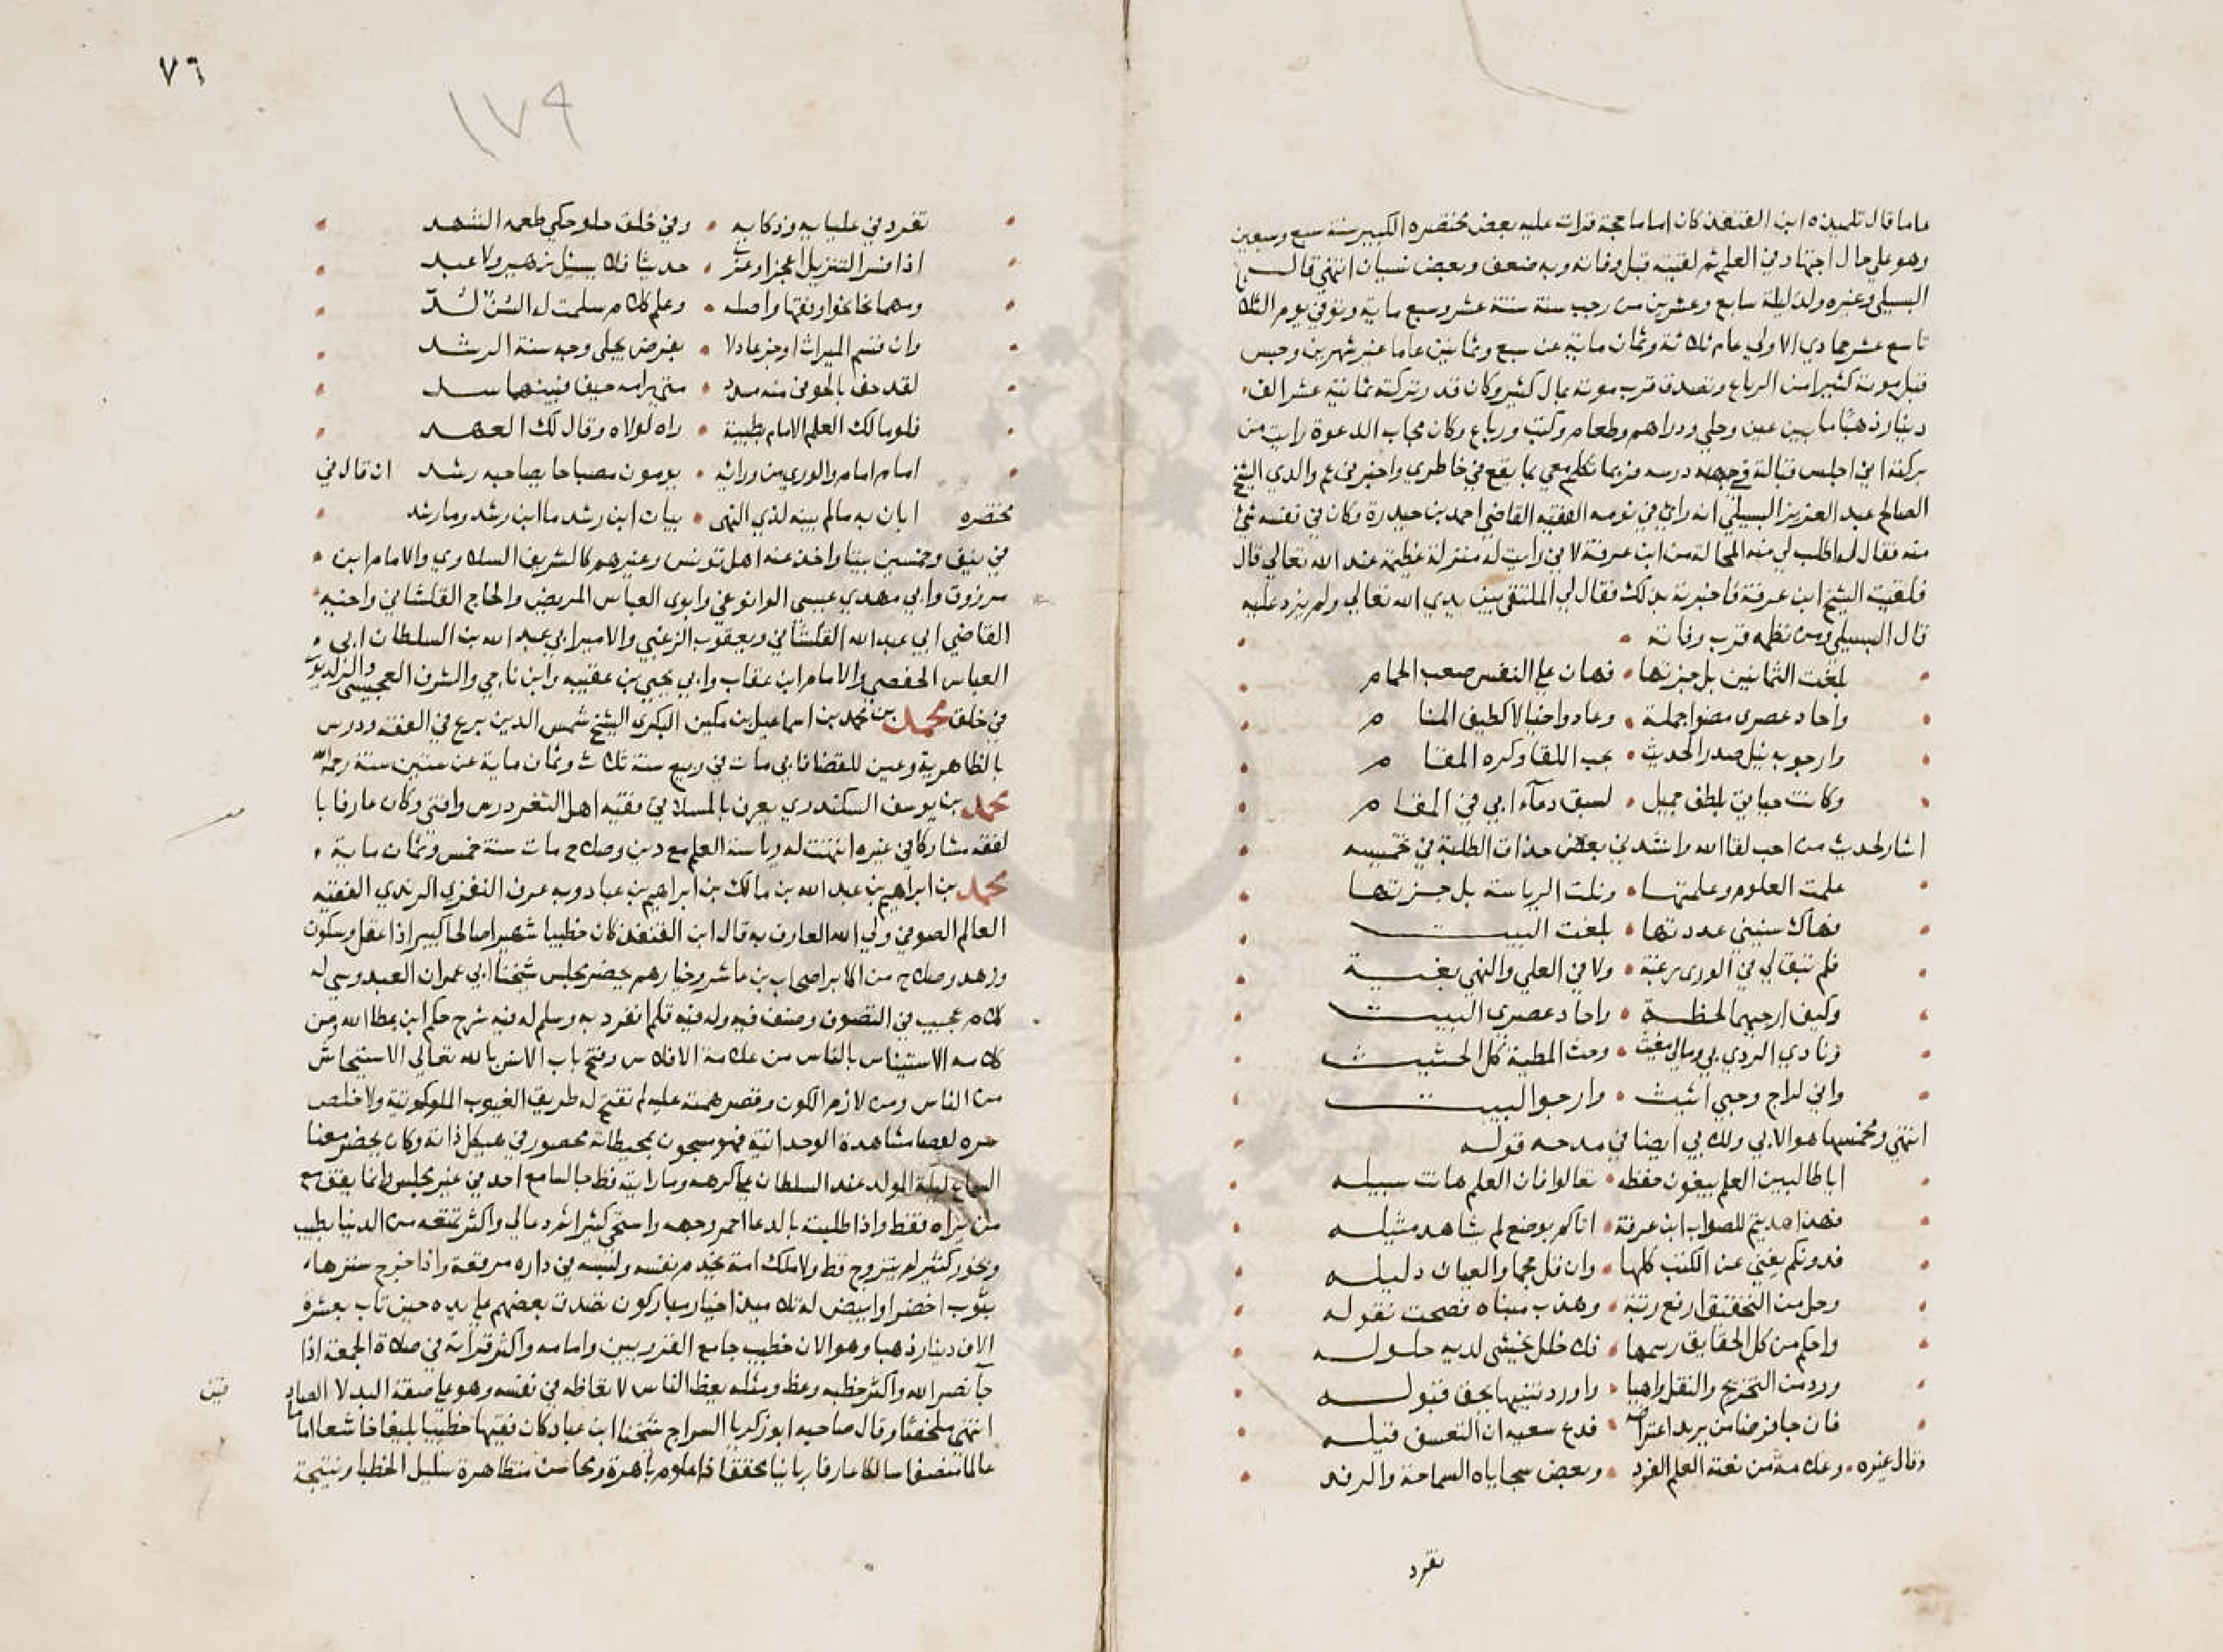 ماما قال تلميذه ابن القنفذ كان اماما حجة قرات عليه بعض مختصره الكبير سنة سبع وسبعين
وهو على حال اجتهاد في العلم ثم لقيته قبل وفاته وبه ضعف وبعض نسيان انتهى قال
البسيلي وغيره ولد ليلة سابع وعشرين من رجب سنة ستة عشر وسبع ماية وتوفي يوم الثلاثا
تاسع عشر جمادي الاولي عام ثلاثة وثمان ماية عن سبع وثمانين عاما غير شهرين وحبس
قبل موته كثيرا من الرباع وتصدق قرب موته بمال كثير وكان قدر تركته ثمانية عشر الف
دينار ذهبا ما بين عين وحلي ودراهم وطعام وكتب ورباع وكان مجاب الدعوة رايت من
بركته اني اجلس قبالة درسه فربما تكلم معي بما يقع في خاطري واخبرني عم والدي الشيخ
الصالح عبد العزيز البسيلي انه راى في نومه الفقيه القاضي احمد بن حيدرة وكان في نفسه شي
منه فقال له اطلب لي منه المحالة من ابن عرفة لاني رايت له منزلة عظيمة عند الله تعالي قال
فلقيت الشيخ ابن عرفة فاخبرته بذلك فقال لي الملتقى بين يدي الله تعالي ولم يزد عليه
قال البسيلي ومن نظمه قرب وفاته
بلغت الثمانين بل جزتها • فهان على النفس صعب الحمام
واحاد عصرى مضوا جملة • وعادوا خيالا كطيف المنام
وارجو به نيل صدر الحديث • بحب اللقا وكره المقام
وكانت حياتي بلطف جميل • لسبق دعآء ابي في المقام
اشار لحديث من احب لقا الله وانشدني بعض حذاق الطلبة في تخميسه
علمت العلوم وعلمتها • ونلت الرياسة بل حزتها
فهاك سنيني عددتها • بلغت البيت
فلم تبق لي في الورى رغبة • ولا في العلي والنهي بغية
وكيف ارجيها لحظة • واحاد عصري البيت
ونادي الردي بي ومالي مغيث • وحث المطية كل الحثيث
واني لراج وحبي اثيث • وارجو البيت
انتهي ومخمسها هو الابي وللابي ايضا في مدحه قوله
ايا طالبين العلم يبغون حفظه • تعالوا فان العلم هانت سبيله
فهذا هديتم للصواب ابن عرفة • اتاكم بوضع لم يشاهد مثيله
فدونكم يغني عن الكتب كلها • وان قل حجما والعيان دليله
وحل من التحقيق ارفع رتبة • وهذب مبناه فصحت نقوله
واحكم من كل الحقايق رسمها • فلا خلل يخشى لديه حلوله
ورد من التخريج والنقل واهيا • واورد تنبيها يحق قبوله
فان جا فرضا من يريد اعتراضه • فدع سعيه ان التعسف قيله
وقال غيره • وعلامة من نعته العلم الفرد • وبعض سجاياه السماحة والرفد
تفرد
٧٦
١٧٩
تفرد في عليايه وذكايه • وفي خلق حلو حكي طعمه الشهد
اذا فسر التنزيل اعجز او عزت • حديثا فلا يسئل زهير ولا عبد
ومهما نحا نحوا وفقها واصله • وعلم كلام سلمت له السن لد
وان قسم الميراث اوجز عادلا • بفرض يجلى وجه سنة الرشد
لقد حف بالحوفي منه سدد • متى يرامه حيف فبينهما سد
فلو مالك العلم الامام بطيبة • راه لولاه وقال لك العهد
امام امام والورى من ورائه • يومون مصباحا يصاحبه رشد ان قال في
مختصره ابان به مالم يبينه لذي النهي • بيان ابن رشد ما ابن رشد وما رشد
في نيف وخمسين بيتا واخذ عنه اهل تونس وغيرهم كالشريف السلاوي والامام ابن
مرزوق وابي مهدي عيسى الوانوغي وابوى العباس المريض والحاج القلشاني واخيه
القاضي ابي عبد الله القلشاني ويعقوب الزغبي والامير ابي عبد الله بن السلطان ابي
العباس الحفصي والامام ابن عقاب وابي يحيى بن عقيبه وابن ناجي والشرف العجيسي والزلديوي
في خلق محمد بن محمد بن اسماعيل بن مكين البكرى الشيخ شمس الدين برع في الفقه ودرس
بالظاهرية وعين للقضا فابي مات في ربيع سنة ثلاث وثمان ماية عن ستين سنة رحمه الله
محمد بن يوسف السكندري يعرف بالمسلاتي فقيه اهل الثغر درس وافتى وكان عارفا با
لفقه مشاركا في غيره انتهت له رياسة العلم مع دين وصلاح مات سنة خمس وثمان ماية
محمد بن ابراهيم بن عبد الله بن مالك بن ابراهيم بن عباد وبه عرف النفزي الرندي الفقيه
العالم الصوفي ولي الله العارف به قال ابن القنفذ كان خطيبا شهيرا صالحا كبيرا ذا عقل وسكون
وزهد وصلاح من اكابر اصحاب بن عاشر وخيارهم حضر مجلس شيخنا ابي عمران العبدوسي له
كلام عجيب في التصوف وصنف فيه وله فيه قلم انفرد به وسلم له فيه شرح حكم ابن عطا الله ومن
كلامه الاستيناس بالناس من علامة الافلاس وفتح باب الانس بالله تعالي الاستيحاش
من الناس ومن لازم الكون وقصر همته عليه لم تفتح له طريق الغيوب الملكوتية ولا خلص
سره لفضا مشاهدة الوحدانية فهو مسجون بمحيطاته محصور في هيكل ذاته وكان يحضر معنا
السماع ليلة المولد عند السلطان على كره وما رايته قط جالسا مع احد في غير مجلس وانما يقف مع
من يراه فقط واذا طلبته بالدعا احمر وجهه واستحى كثيرا ثم دعا لي واكثر تمتعه من الدنيا بطيب
وبخور كثير لم يتزوج قط ولا ملك امة يخدم نفسه ولبسه في داره مرقعة واذا خرج سترها
بثوب اخضر او ابيض له تلاميذ اخيار مباركون تصدق بعضهم على يده حين تاب بعشرة
الاف دينار ذهبا وهو الان خطيب جامع القرويين وامامه واكثر قراته في صلاة الجمعة اذا
جآ نصر الله واكثر خطبه وعظ ومثله يعظ الناس لاتعاظه في نفسه وهو على صفة البدلا
انتهى ملخصا وقال صاحبه ابو زكريا السراج شيخنا ابن عباد كان فقيها خطيبا بليغا خاشعا اماما
عالما متصوفا سالكا عارفا ربانيا محققا ذا علوم باهرة ومحاسن متظاهرة سليل الخطبا ونتيجة